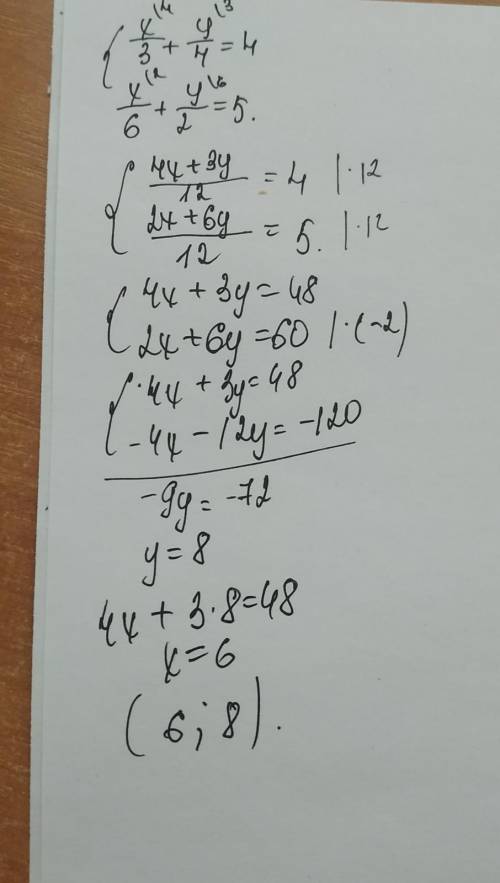 { x\4/3 + y\3/4 = 4
x\2/6 + y\6/2 = 5.
{ 4x + 3y/12 = 4 | · 12
2x + 6y/12 = 5. | · 12
{ 4x + 3y = 48
2x + 6y = 60 | · (-2)
{ 4x + 3y = 48
-4x - 12y = -120
-9y = -72
y = 8
4x + 3 · 8 = 48
x = 6
(6; 8).